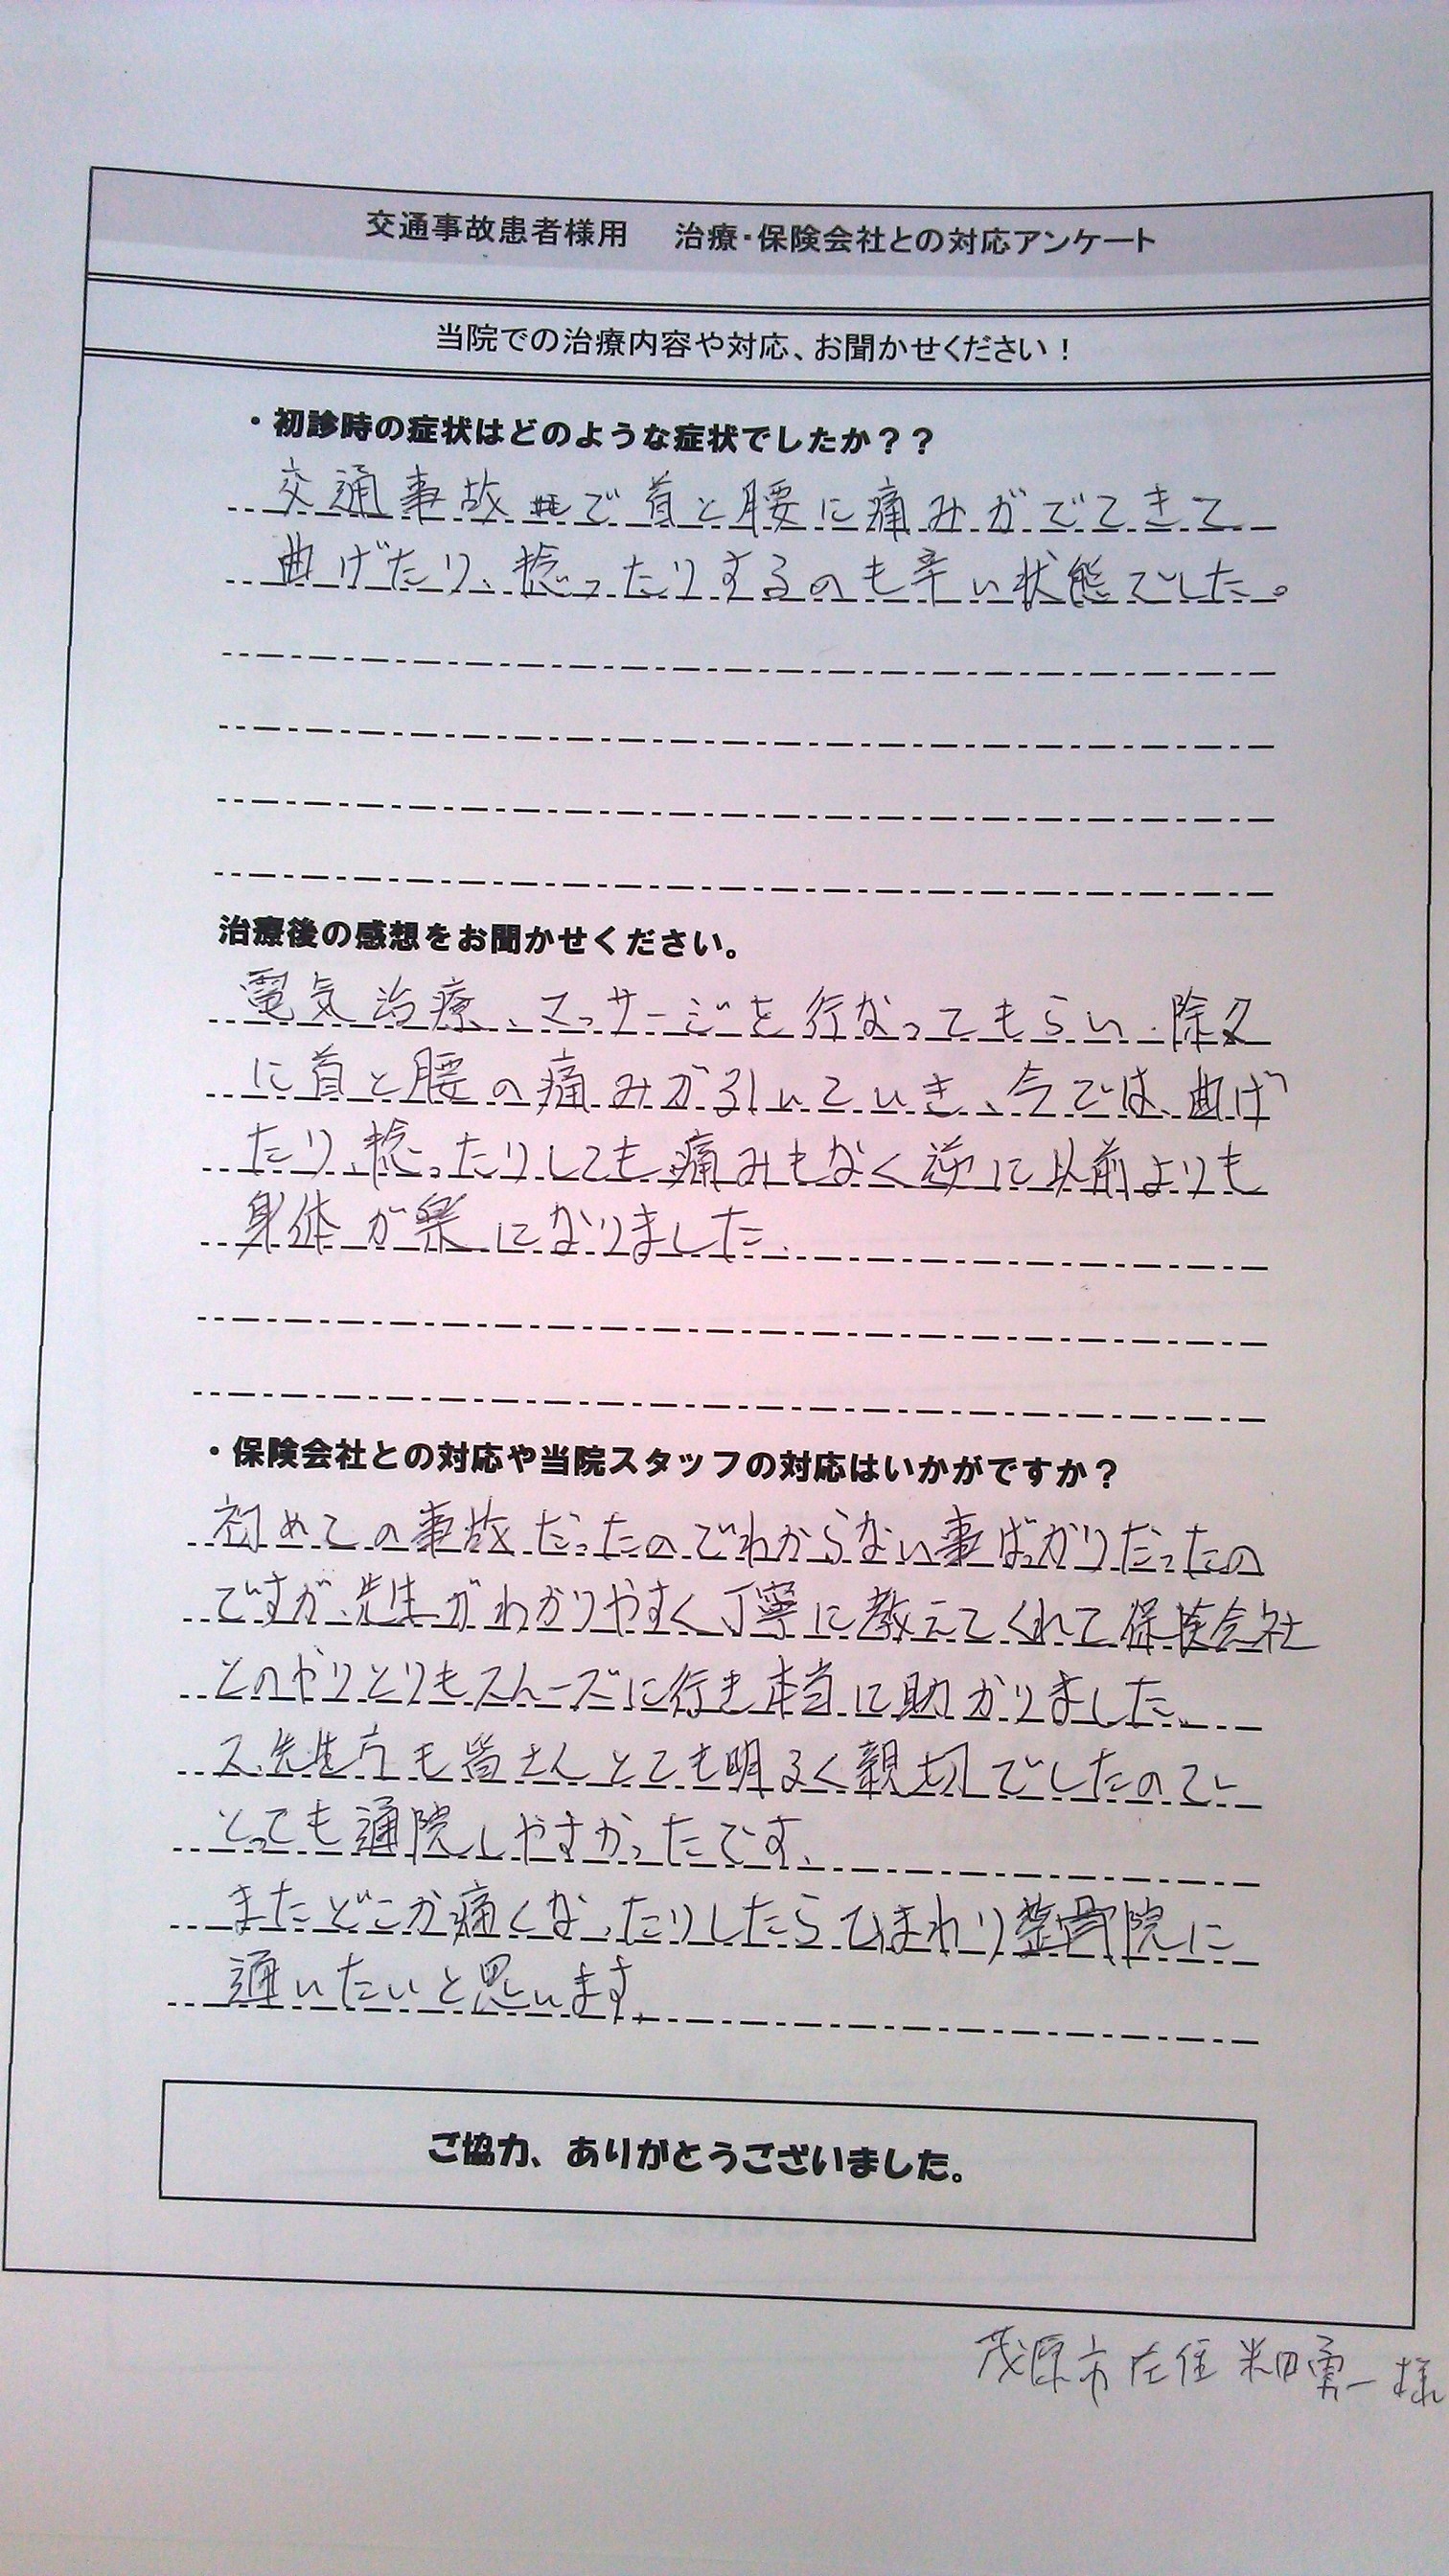 交通事故患者様用 治療・保険会社との対応アンケート
当院での治療内容や対応、お聞かせください！
・初診時の症状はどのような症状でしたか？？
交通事故で首と腰に痛みがでてきて
曲げたり、捻ったりするのも辛い状態でした。
治療後の感想をお聞かせください。
電気治療、マッサージを行なってもらい、除々
に首と腰の痛みが引いていき、今では、曲げ
たり、捻ったりしても痛みもなく逆に以前よりも
身体が楽になりました。
・保険会社との対応や当院スタッフの対応はいかがですか？
初めての事故だったのでわからない事ばっかりだったの
ですが、先生がわかりやすく丁寧に教えてくれて保険会社
とのやりとりもスムーズに行き本当に助かりました。
又、先生方も皆さんとても明るく親切でしたので
とっても通院しやすかったです。
またどこか痛くなったりしたらひまわり整骨院に
通いたいと思います。
ご協力、ありがとうございました。
茂原市在住 米田勇一様